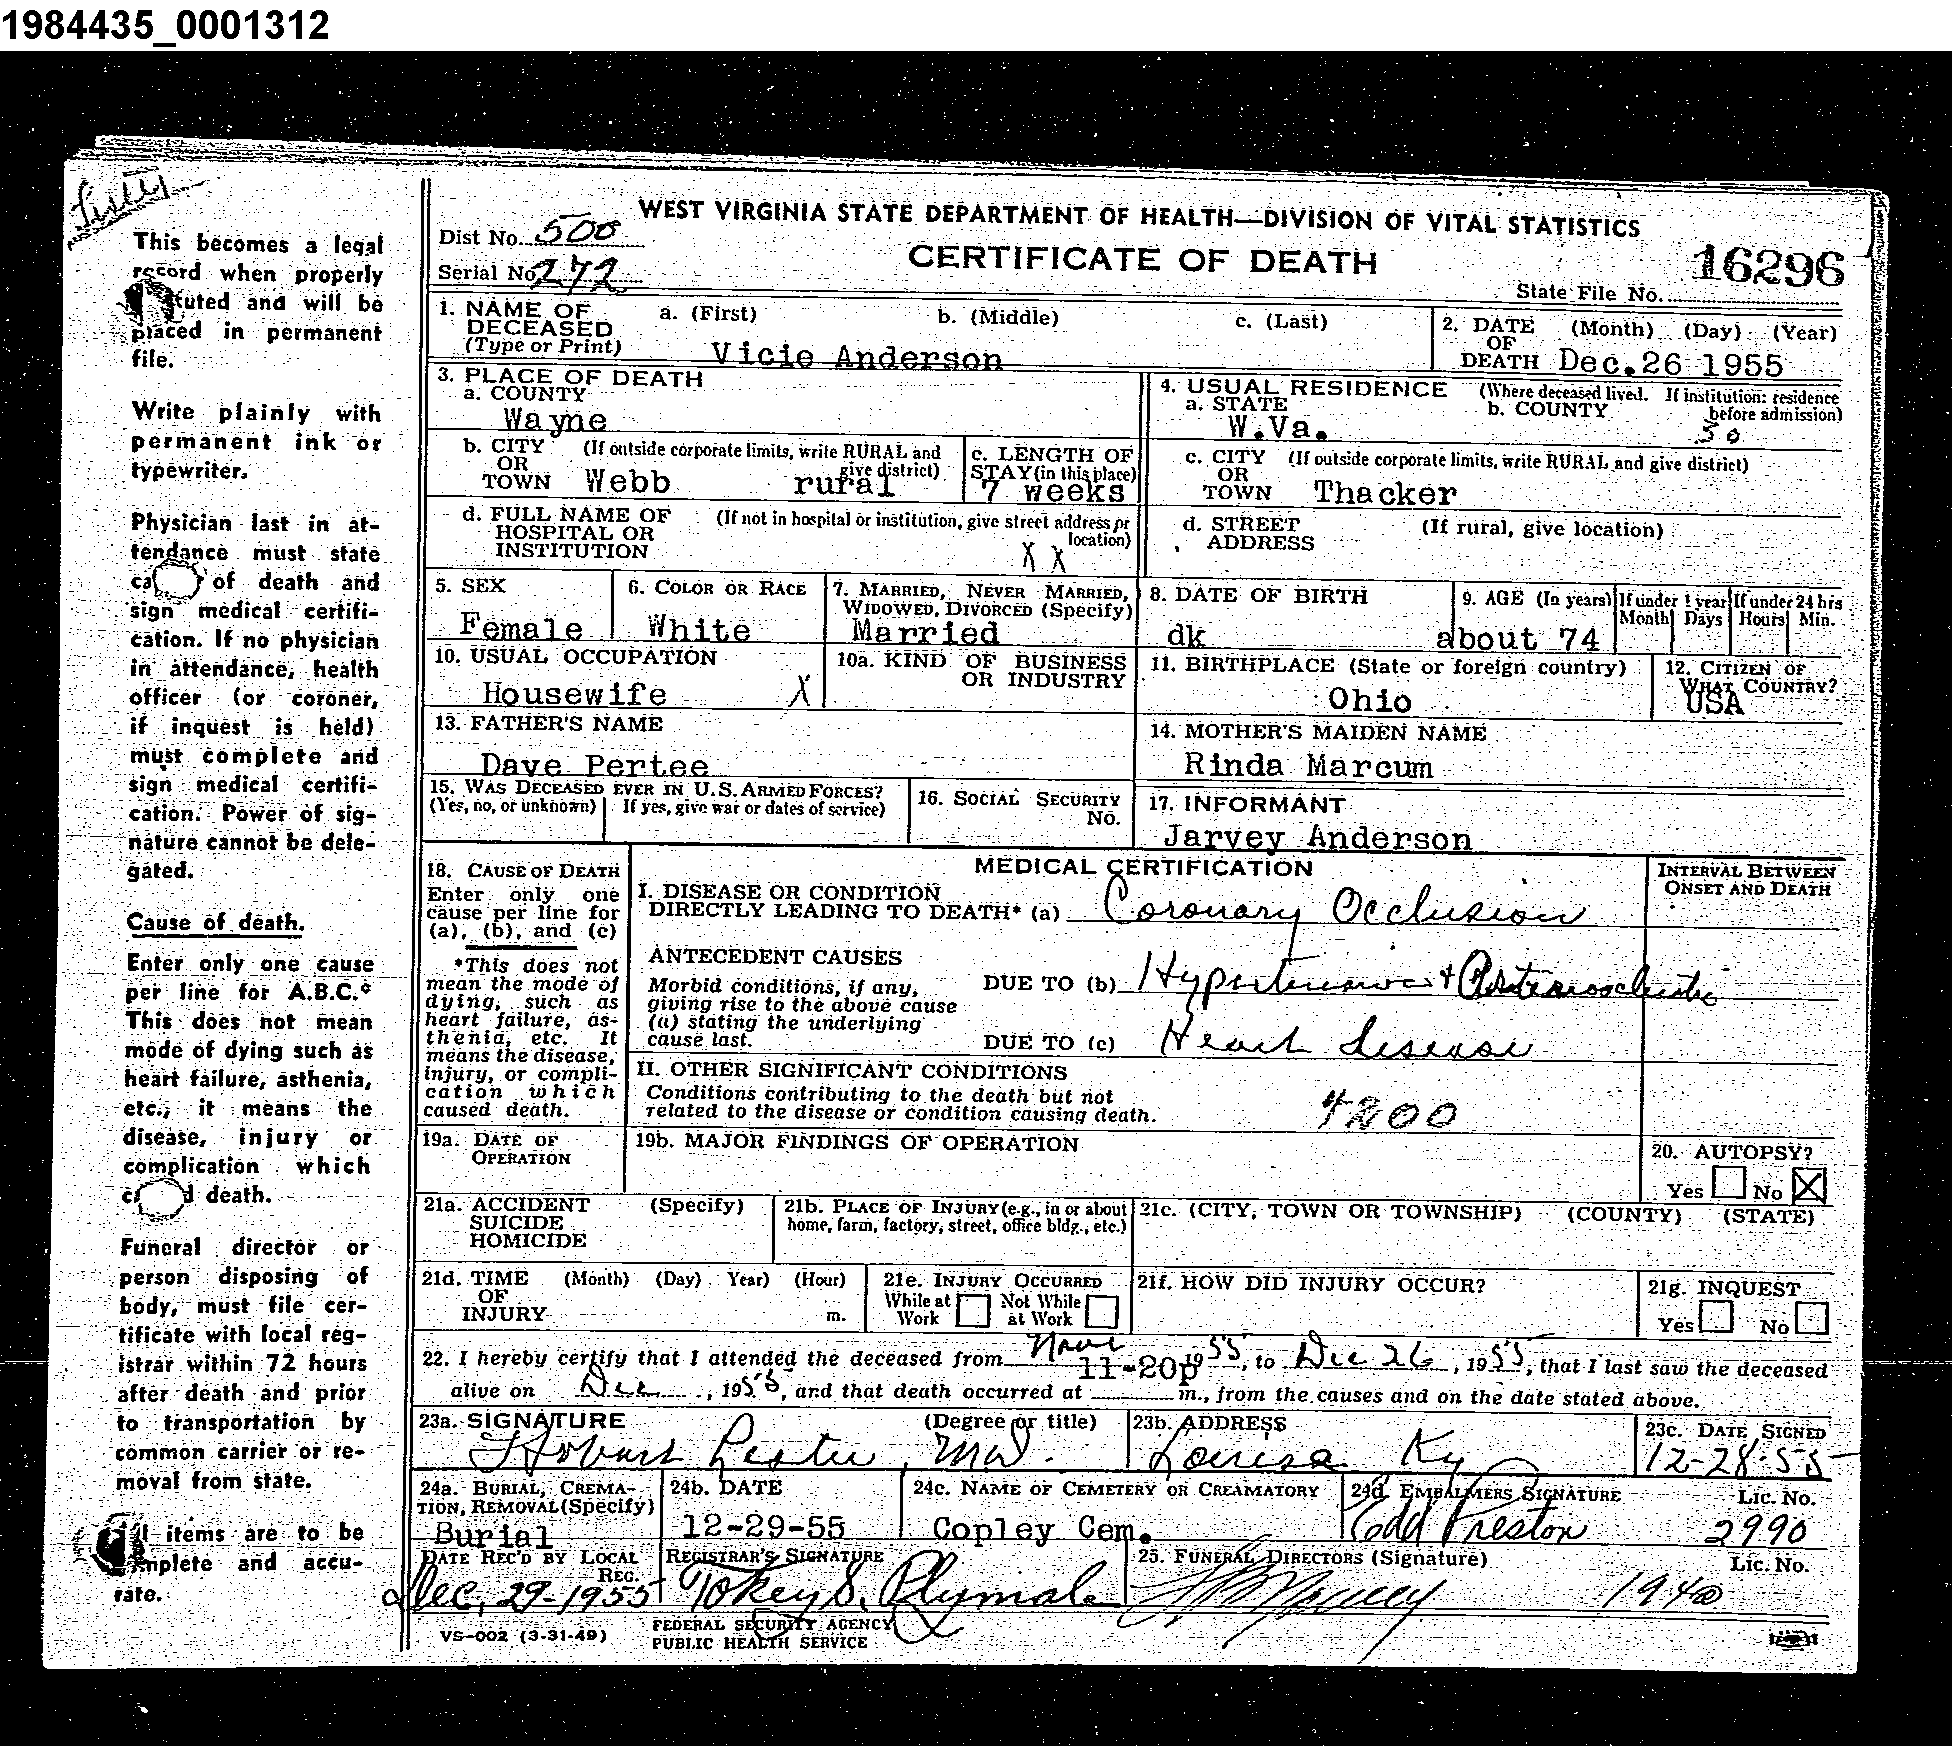 1984435_0001312
WEST VIRGINIA STATE DEPARTMENT OF HEALTH—DIVISION OF VITAL STATISTICS
CERTIFICATE OF DEATH
Dist No. 500
Serial No. 272
16296
State File No.
1. NAME OF DECEASED (Type or Print) a. (First) b. (Middle) c. (Last)
Vicie Anderson
2. DATE OF DEATH (Month) (Day) (Year)
Dec.26 1955
3. PLACE OF DEATH
a. COUNTY
Wayne
4. USUAL RESIDENCE (Where deceased lived. If institution: residence before admission)
a. STATE b. COUNTY
W.Va. 50
b. CITY OR TOWN (If outside corporate limits, write RURAL and give district)
Webb rural
c. LENGTH OF STAY (in this place)
7 weeks
c. CITY OR TOWN (If outside corporate limits, write RURAL and give district)
Thacker
d. FULL NAME OF HOSPITAL OR INSTITUTION (If not in hospital or institution, give street address or location)
X X
d. STREET ADDRESS (If rural, give location)
5. SEX
Female
6. COLOR OR RACE
White
7. MARRIED, NEVER MARRIED, WIDOWED, DIVORCED (Specify)
Married
8. DATE OF BIRTH
dk
9. AGE (In years) If under 1 year Month Days If under 24 hrs Hours Min.
about 74
10. USUAL OCCUPATION
Housewife X
10a. KIND OF BUSINESS OR INDUSTRY
11. BIRTHPLACE (State or foreign country)
Ohio
12. CITIZEN OF WHAT COUNTRY?
USA
13. FATHER'S NAME
Dave Pertee
14. MOTHER'S MAIDEN NAME
Rinda Marcum
15. WAS DECEASED EVER IN U.S. ARMED FORCES?
(Yes, no, or unknown) If yes, give war or dates of service)
16. SOCIAL SECURITY No.
17. INFORMANT
Jarvey Anderson
18. CAUSE OF DEATH
Enter only one
cause per line for
(a), (b), and (c)
*This does not
mean the mode of
dying, such as
heart failure, as-
thenia, etc. It
means the disease,
injury, or compli-
cation which
caused death.
MEDICAL CERTIFICATION
INTERVAL BETWEEN ONSET AND DEATH
I. DISEASE OR CONDITION
DIRECTLY LEADING TO DEATH* (a) Coronary Occlusion
ANTECEDENT CAUSES
Morbid conditions, if any,
giving rise to the above cause
(a) stating the underlying
cause last.
DUE TO (b) Hypertensive + Arteriosclerotic
DUE TO (c) Heart Disease
II. OTHER SIGNIFICANT CONDITIONS
Conditions contributing to the death but not
related to the disease or condition causing death.
4200
19a. DATE OF OPERATION
19b. MAJOR FINDINGS OF OPERATION
20. AUTOPSY?
Yes No X
21a. ACCIDENT SUICIDE HOMICIDE (Specify)
21b. PLACE OF INJURY (e.g., in or about home, farm, factory, street, office bldg., etc.)
21c. (CITY, TOWN OR TOWNSHIP) (COUNTY) (STATE)
21d. TIME OF INJURY (Month) (Day) Year) (Hour) m.
21e. INJURY OCCURRED While at Work Not While at Work
21f. HOW DID INJURY OCCUR?
21g. INQUEST
Yes No
22. I hereby certify that I attended the deceased from Nov 1955, to Dec 26, 1955, that I last saw the deceased
alive on Dec, 1955, and that death occurred at 11-20p m., from the causes and on the date stated above.
23a. SIGNATURE (Degree or title)
Hobart Lester, MD.
23b. ADDRESS
Louisa Ky
23c. DATE SIGNED
12-28-55
24a. BURIAL, CREMA-
TION, REMOVAL (Specify)
Burial
24b. DATE
12-29-55
24c. NAME OF CEMETERY OR CREAMATORY
Copley Cem.
24d. EMBALMERS SIGNATURE Lic. No.
Edd Preston 2990
DATE REC'D BY LOCAL REG.
Dec, 29-1955
REGISTRAR'S SIGNATURE
Tokey S. Plymale
25. FUNERAL DIRECTORS (Signature) Lic. No.
1940
VS-002 (3-31-49)
FEDERAL SECURITY AGENCY
PUBLIC HEALTH SERVICE
This becomes a legal
record when properly
cuted and will be
placed in permanent
file.
Write plainly with
permanent ink or
typewriter.
Physician last in at-
tendance must state
ca of death and
sign medical certifi-
cation. If no physician
in attendance, health
officer (or coroner,
if inquest is held)
must complete and
sign medical certifi-
cation. Power of sig-
nature cannot be dele-
gated.
Cause of death.
Enter only one cause
per line for A.B.C.*
This does not mean
mode of dying such as
heart failure, asthenia,
etc., it means the
disease, injury or
complication which
c d death.
Funeral director or
person disposing of
body, must file cer-
tificate with local reg-
istrar within 72 hours
after death and prior
to transportation by
common carrier or re-
moval from state.
items are to be
mplete and accu-
rate.